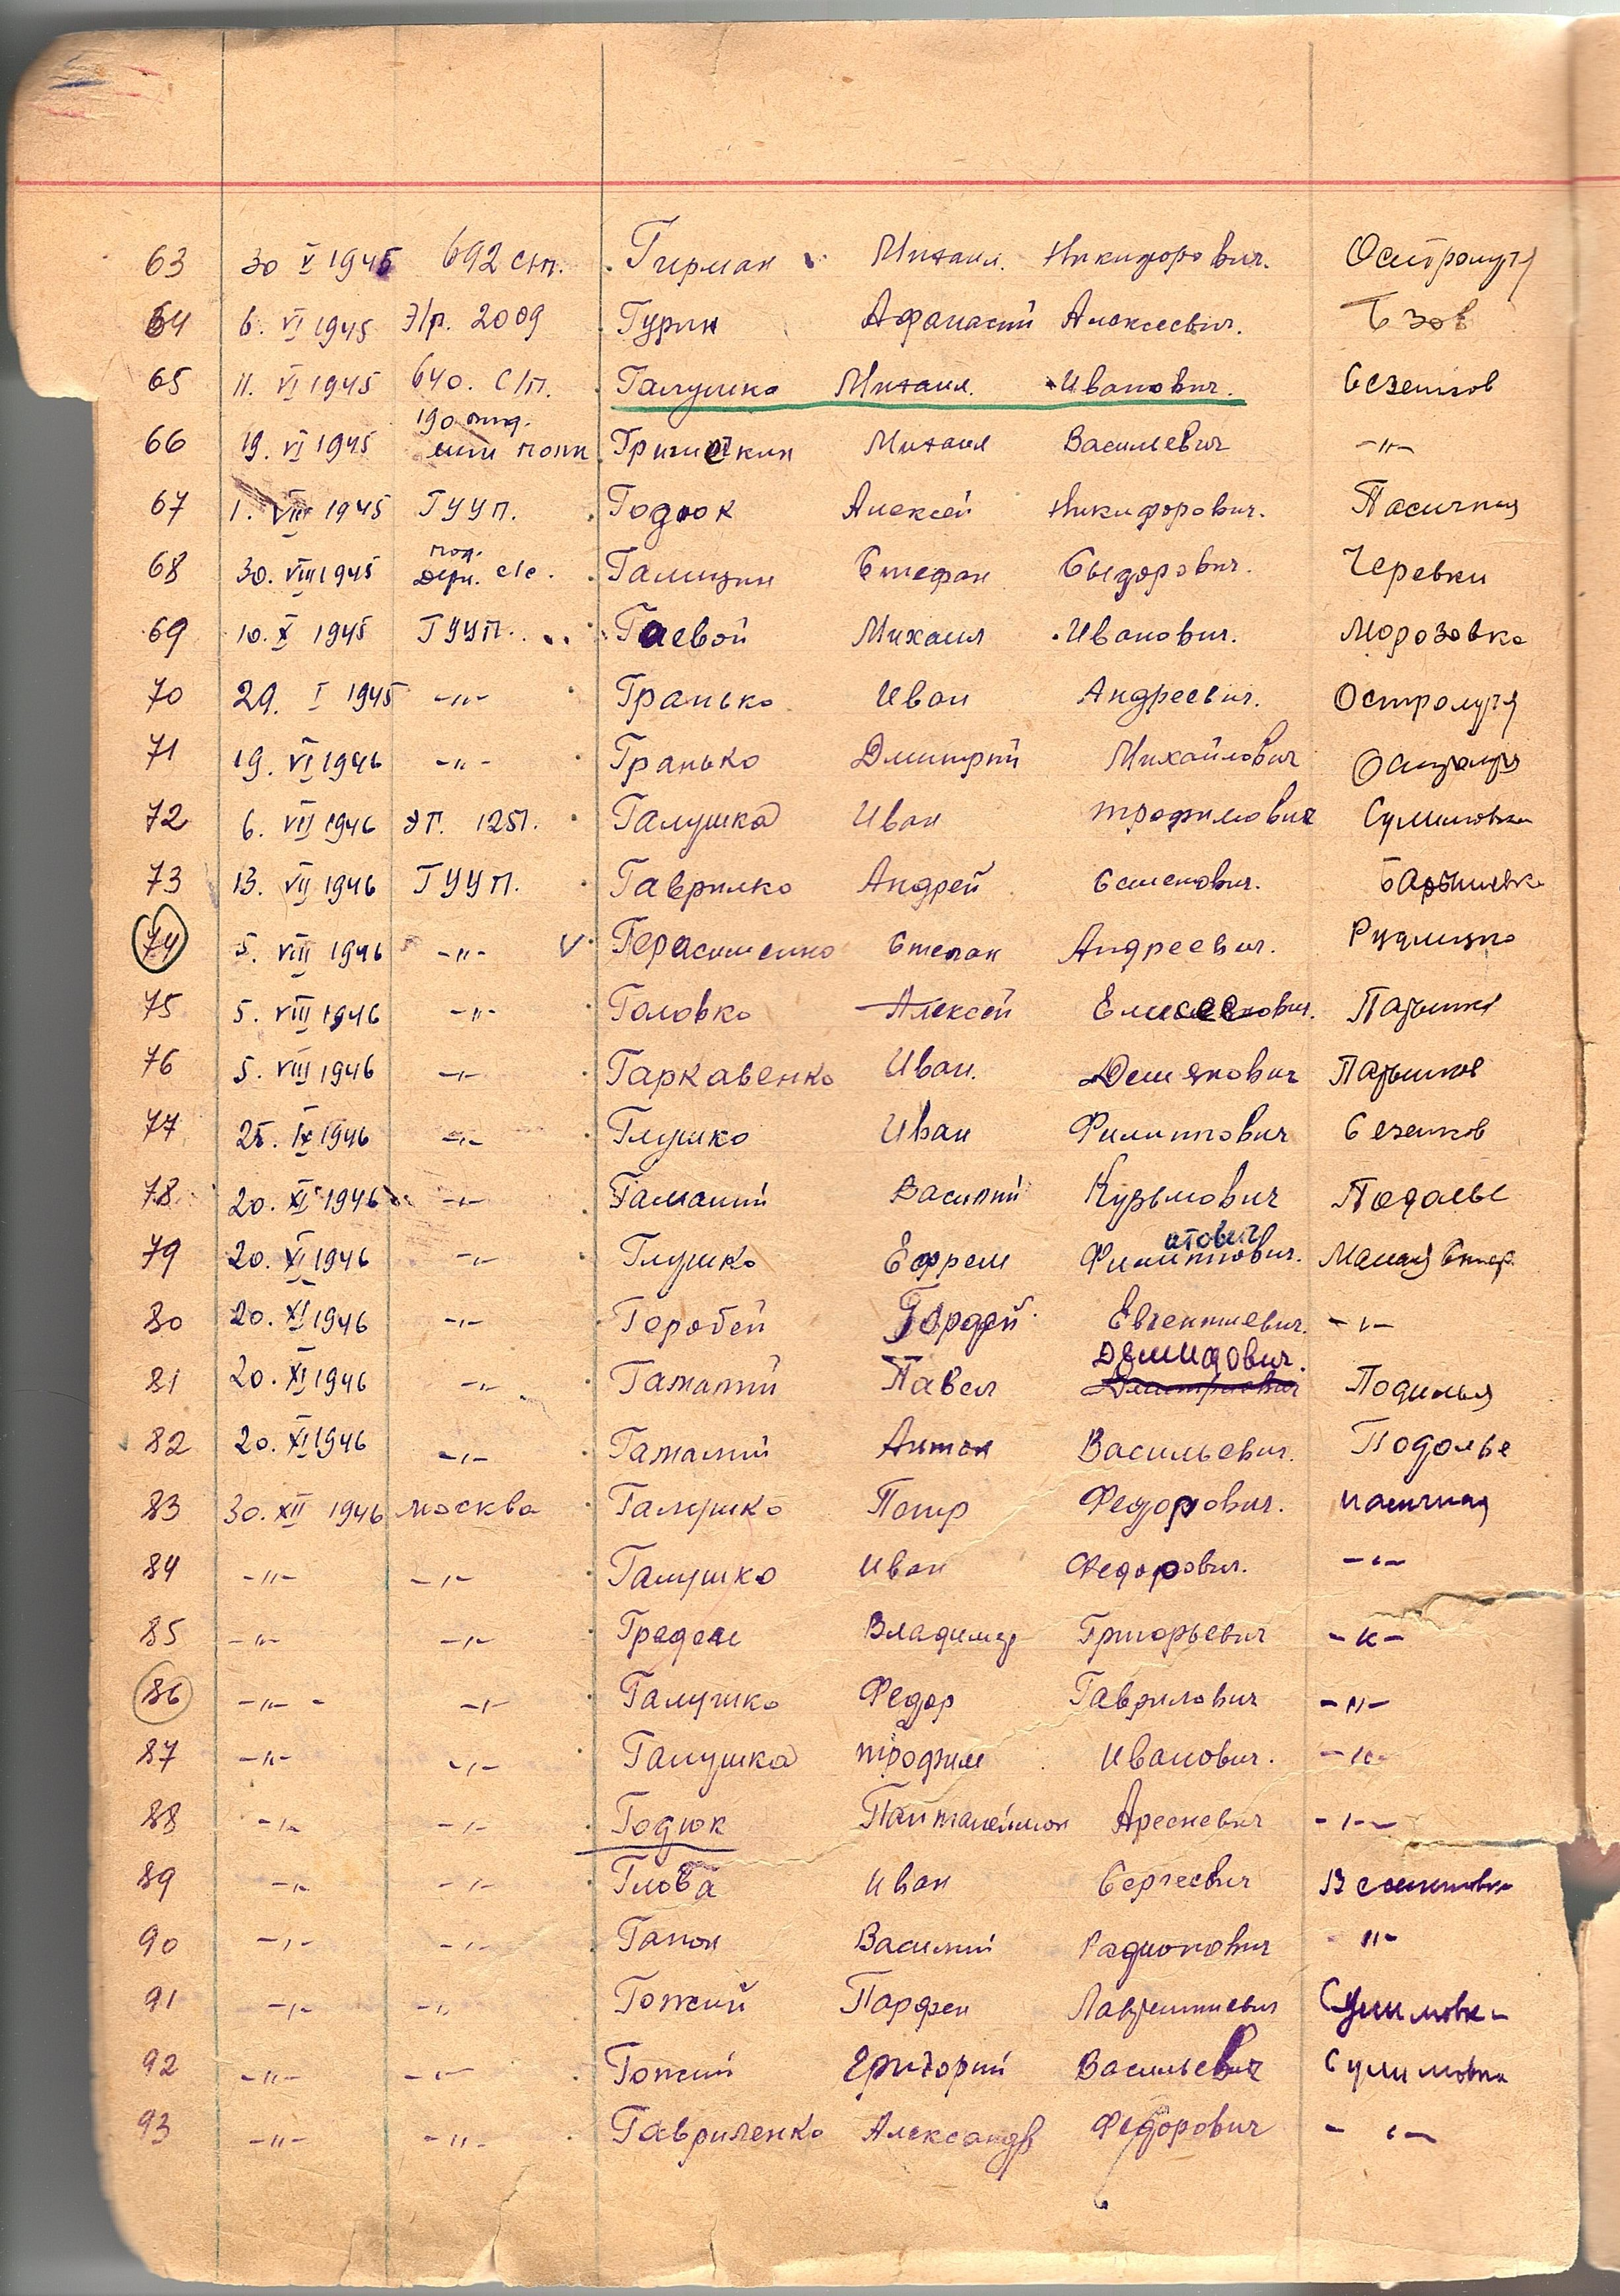 63 30 V 1945 692 с/п. Гирман Михаил. Никифорович. Остролучя
64 6. VI 1945 Э/г. 2009 Гурин Афанасий Алексеевич. Бзов
65 11. VI 1945 640. С/П. Галушко Михаил. Иванович. Сезенков
190
66 19. VI 1945 полк Гришечкин Михаил Васильевич -"-
67 1. VIII 1945 ГУУП. Годюк Алексей Никифорович. Пасичная
68 30. VIII 1945 с/с. Галицин Стефан Сыдорович. Черевки
69 10. X 1945 ГУУП. Гаевой Михаил Иванович. Морозовка
70 29. I 1945 -"- Гранько Иван Андреевич. Остролучя
71 19. VI 1946 -"- Гранько Дмитрий Михайлович Остролучя
72 6. VII 1946 ЭГ. 1251. Галушка Иван трофимович Сулимовка
73 13. VII 1946 ГУУП. Гаврилко Андрей Семенович. Барышевка
74 5. VIII 1946 -"- V Герасименко Степан Андреевич. Рудницко
75 5. VIII 1946 -"- Головко Алексей Елисеевич. Парышков
76 5. VIII 1946 -"- Гаркавенко Иван. Демянович Парышков
77 25. IX 1946 -"- Глушко Иван Филиппович Сезенков
78. 20. XI 1946 -"- Гамалий Василий Кузьмович Подолье
атович
79 20. XI 1946 -"- Глушко Ефрем Филиппович. Малая Стар.
80 20. XI 1946 -"- Горобей Гордей Евгениевич. -"-
Демидович.
81 20. XI 1946 -"- Гамалий Павел Дмитриевич Подилья
82 20. XI 1946 -"- Гамалий Антон Васильевич. Подолье
83 30. XII 1946 Москва Галушко Петр Федорович. пасичная
84 -"- -"- Галушко Иван Федорович. -"-
85 -"- -"- Владимир Григорьевич -"-
86 -"- -"- Галушко Федор Гаврилович -"-
87 -"- -"- Галушка трофим Иванович. -"-
88 -"- -"- Годюк Панталеймон Арсеневич -"-
89 -"- -"- Глоба Иван Сергеевич Веселиновка
90 -"- -"- Гапон Василий Радионович "-
91 -"- -"- Гожий Парфен Лаврентиевич Сулимовка
92 -"- -"- Гожий Григорий Васильевич Сулимовка
93 -"- -"- Гавриленко Александр Федорович -"-